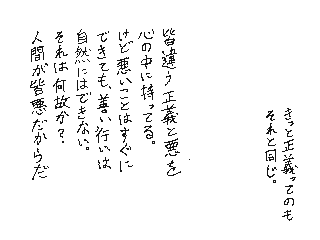 きっと正義ってのも
それと同じ。
皆違う正義と悪を
心の中に持ってる。
けど悪いことはすぐに
できても、善い行いは
自然にはできない。
それは何故か？
人間が皆悪だからだ